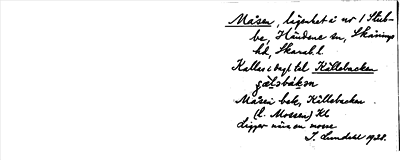 Måsen, lägenhet i nr 1 Stub-
be, Händene sn, Skånings
hd, Skarab. l.
Kallas i dagl. tal Källebacken
Måsen bek, Källebacken
(l. Mossen) Kl
Ligger nära en mosse
J. Lundahl 1928.